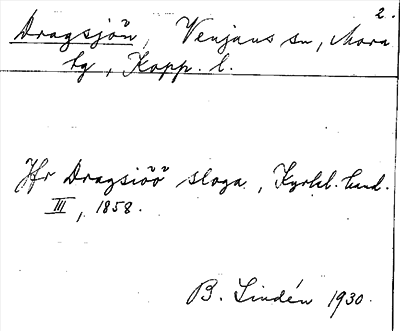 2.
Dragsjön, Venjans sn, Mora
tg, Kopp. l.
Jfr Dragsiöö sloga, Kyrkl. kund.
III, 1858.
B. Lindén 1930.